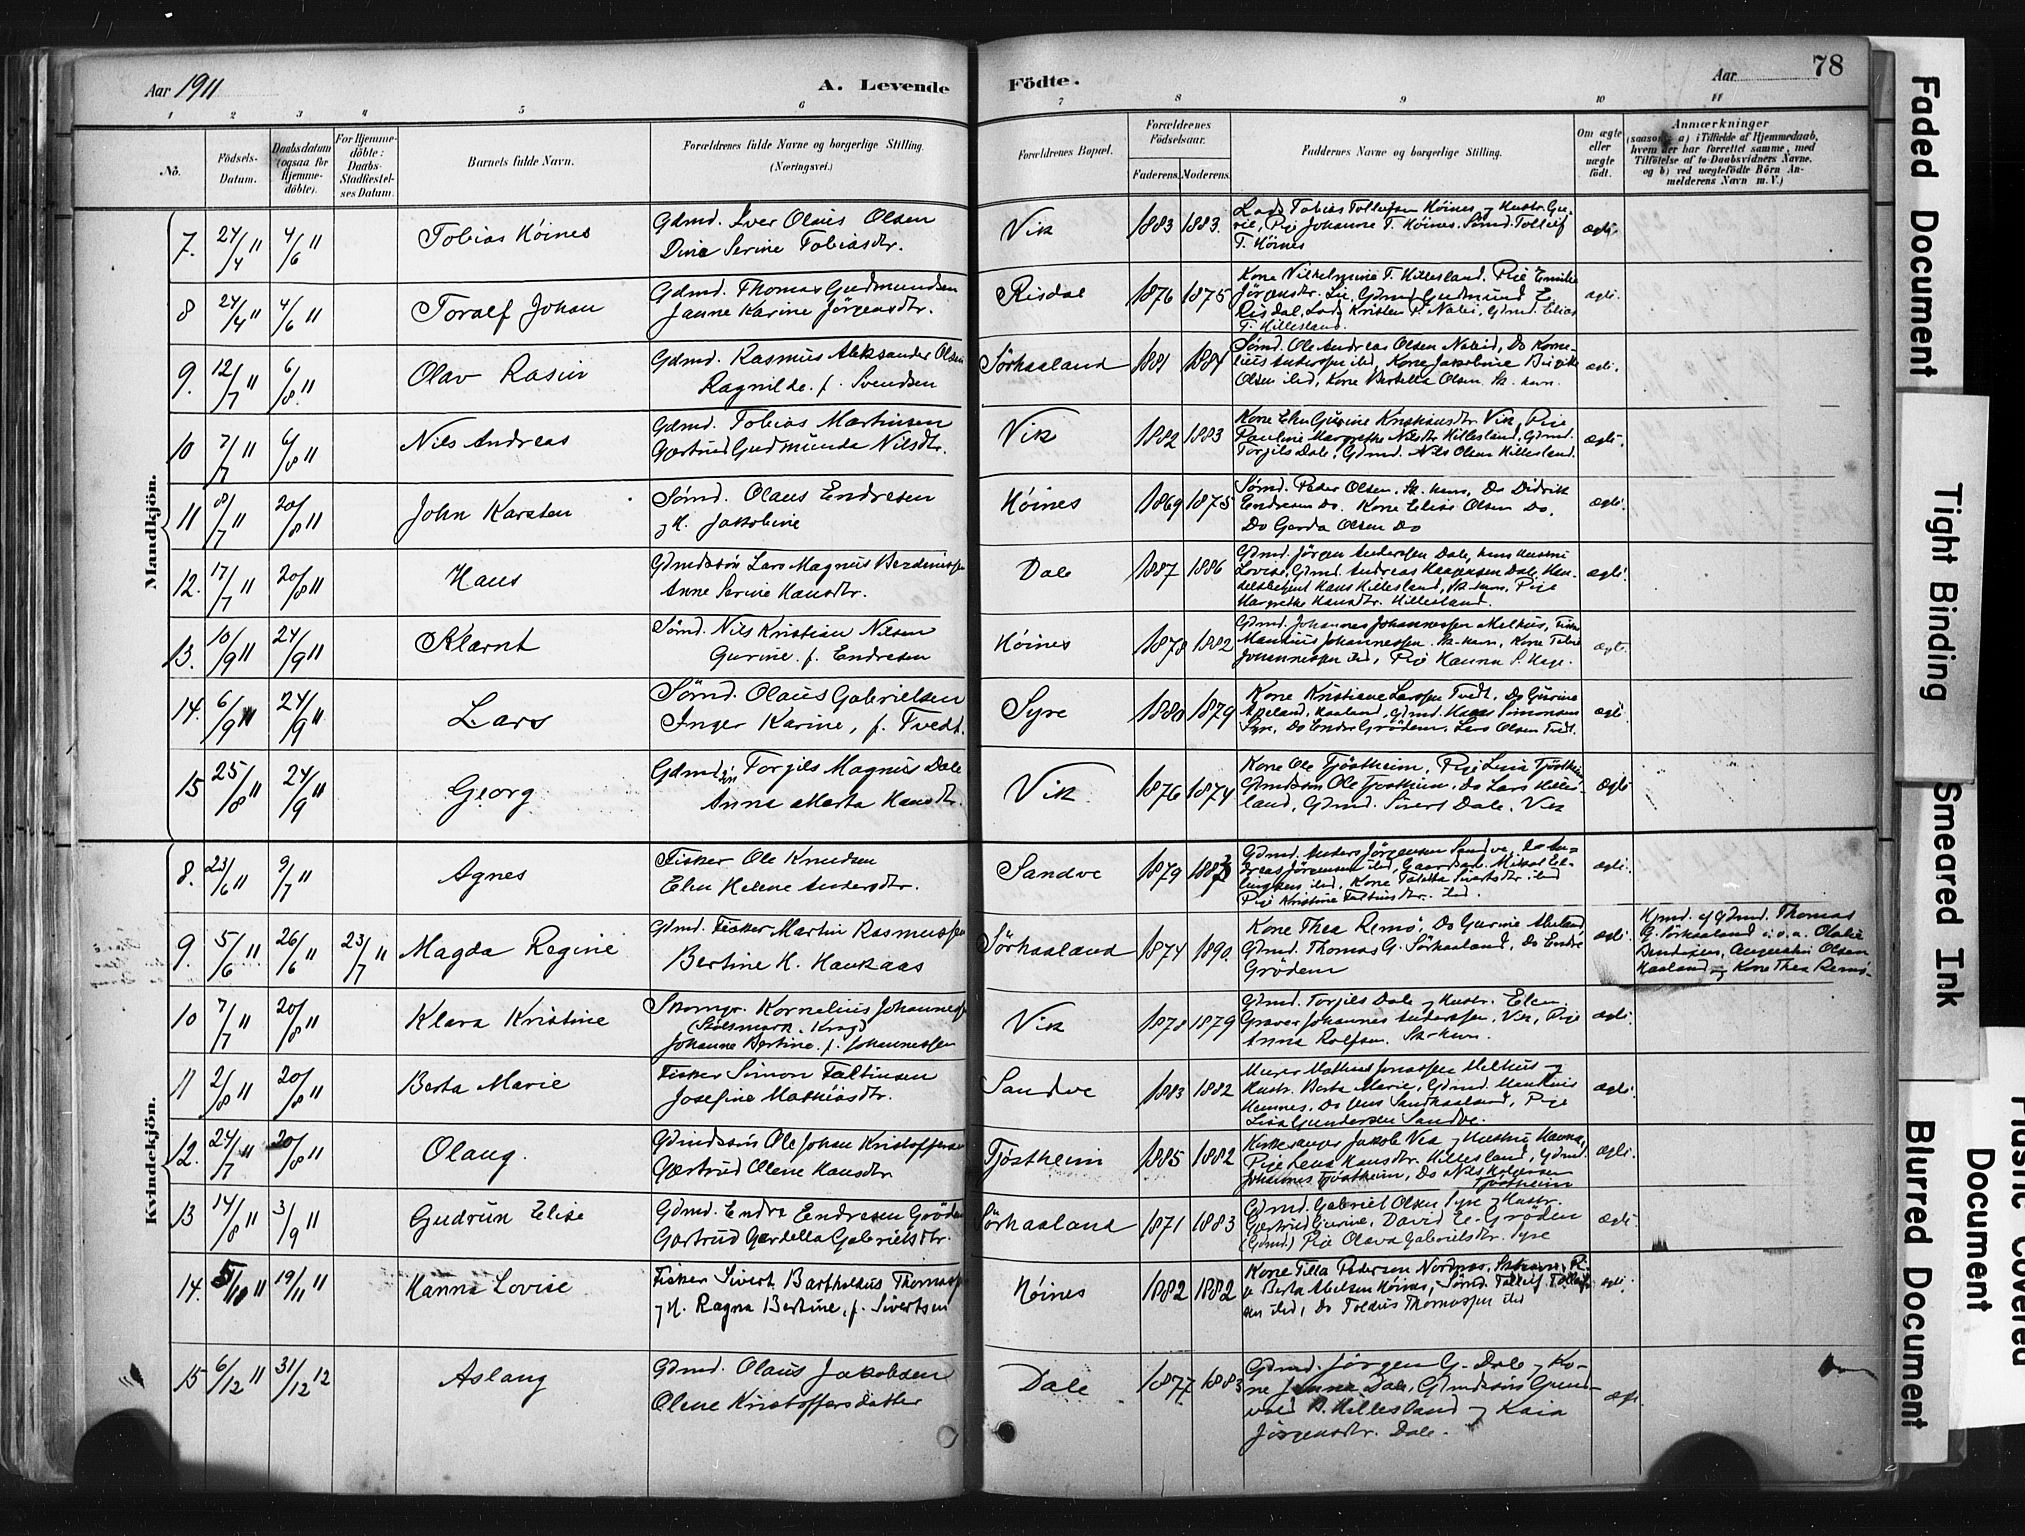 Aar 1911
A. Levende
Födte.
Aar
78
1 2 3 4 5 6 7 8 9 10 11
No.
Födsels-
Datum.
Daabsdatum
(ogsaa for
Hjemme-
döbte).
For Hjemme-
döbte:
Daabs-
Stadfæstel-
ses Datum.
Barnets fulde Navn.
Forældrenes fulde Navne og borgerlige Stilling.
(Næringsvei.)
Forældrenes Bopæl.
Forældrenes
Födselsaar.
Faderens. Moderens.
Faddernes Navne og borgerlige Stilling.
Om ægte
eller
uægte
födt.
Anmærkninger
(saasom: a) i Tilfælde af Hjemmedaab,
hvem der har forrettet samme, med
Tilföielse af to Daabsvidners Navne,
og b) ved uægtefödte Börn An-
melderens Navn m. V.)
Mandkjön.
7. 24/4 11 4/6 11 Tobias Höines
Gdmd. Iver Olaus Olsen
Dina Serine Tobiasdtr.
Vik 1883 1883.
Lods Tobias Tollefsen Höines og Hustr. Gu-
rie, Pige Johanne T. Höines, Sömd. Tollef
T. Höines
ægte.
8 24/4 11 4/6 11 Toralf Johan
Gdmd. Thomas Gudmundsen
Janne Karine Jörgensdtr.
Risdal 1876 1875
Kone Vilhelmine T. Hillesland. Pige Emilie
Jörgensdtr. Lie, Gdmd. Gudmund E.
Risdal, Lods Kristen P. , Gdmd. Elias
T. Hillesland.
ægte.
9. 12/7 11 6/8 11 Olav Rasin
Gdmd. Rasmus Aleksander Olsen
Ragnilde f. Svendsen
Sörhaaland 1881 1881
Sömd. Ole Andreas Olsen , Do Korne-
lius Andersen ibd, Kone Jakobine
Olsen ibd, Kone Bertella Olsen, Sk. havn.
ægte.
10 7/7 11 6/8 11 Nils Andreas
Gdmd. Tobias Martinsen
Gertrud Gudmunda Nilsdtr.
Vik 1882 1883
Kone Elen Gurine Kristiansdtr. Vik, Pige
Pauline Margrethe Nilsdtr Hillesland, Gdmd.
Torgils Dale, Gdmd. Nils Olsen Hillesland.
ægte.
11 8/7 11 20/8 11 John Karsten
Sömd. Olaus Endresen
og H. Jakobine
Höines 1869 1875
Sömd. Peder Olsen, Sk. havn, Do Didrik
Endresen Do. Kone Elise Olsen Do.
Do Gerda Olsen Do
ægte.
12. 17/7 11 20/8 11 Hans
Gdmdssön Lars Magnus Berdinessen
Anne Serine Hansdtr.
Dale 1887 1886
Gdmd. Jörgen Andersen Dale, hans Hustru
Lovise, Gdmd. Andreas Haagensen Dale, Han-
delsbetjent Hans Hillesland, Sk. havn, Pige
Margrethe Hansdtr. Hillesland.
ægte.
13. 10/9 11 24/9 11 Klarnt
Sömd. Nils Kristian Nilsen
Gurine f. Endresen
Höines 1878 1882
Gdmd. Johannes Johannessen Melhus,
Johannessen Sk. havn, Kone
Johannessen ibd, Pige Hanna
ægte.
14. 6/9 11 24/9 11 Lars
Sömd. Olaus Gabrielsen
Inger Karine, f. Tvedt.
Syre 1880 1879
Kone Kristiane Larssen Tvedt, Do Gurine
Haaland, Gdmd. Simonsen
Syre, Do Endre Gröden, Lars Olsen Tvedt.
ægte.
15 25/8 11 24/9 11 Georg
Gdmdssön Torgils Magnus Dale
Anna Marta Hansdtr.
Vik 1876 1874
Kone Ole Tjöstheim, Pige Lina Tjöstheim
Gdmdssön Ole Tjöstheim, Do Lars Hilles-
land, Gdmd. Sivert Dale, Vea
ægte
Kvindekjön.
8. 23/6 11 9/7 11 Agnes
Fisker Ole Knudsen
Elen Helene Andersdtr.
Sandve 1879 1883
Gdmd. Anders Jörgensen Sandve, Do An-
dreas Jörgensen ibd, Gaardarb. Mikal El-
lingsen ibd, Kone Sivertsdtr ibd
Pige Kristine Faltinsdtr. ibd.
ægte.
9. 5/6 11 26/6 11 23/7 11 Magda Regine
Gdmd. Fisker Martin Rasmussen
Bertine H. Haukaas
Sörhaaland 1874 1890.
Kone Thea Remö, Do Gurine
Gdmd. Thomas G. Sörhaaland, Do Endre
Gröden
ægte.
Hjmd. af Gdmd. Thomas
G. Sörhaaland i. o. a. Olalie
Bendixen, Olsen
Haaland og Kone Thea Remö.
10 7/7 11 20/8 11 Klara Kristine
Skomgr. Kornelius Johannessen
(Stölsmark, Krag)
Johanne Bertine f. Johannessen
Vik 1878 1879
Gdmd. Torgils Dale og Hustr. Elen.
Graver Johannes Andersen, Vea, Pige
Anna Rolfsen, Sk. havn.
ægte.
11 2/8 11 20/8 11 Berta Marie
Fisker Simon Faltinsen
Josefine Mathiasdtr.
Sandve 1883 1882
Murer Mathias Jonassen Melhus og
Hustr. Berta Marie, Gdmd.
Hemnes, Do Sandhaaland, Pige
Lisa Gundersen Sandve.
ægte.
12. 24/7 11 20/8 11 Olaug.
Gdmdssön Ole Johan Kristoffersen
Gertrud Olene Hansdtr.
Tjöstheim 1885 1882
Kirkesanger Jakob Vea og Hustru Hanna,
Pige Lena Hansdtr. Hillesland, Gdmd.
Johannes Tjöstheim, Do Nils Holgersen
Tjöstheim
ægte.
13 14/8 11 3/9 11 Gudrun Elise
Gdmd. Endre Endresen Gröden
Gertrud Gardella Gabrielsdtr.
Sörhaaland 1871 1883
Gdmd. Gabriel Olsen Syre og Hustr.
Gertrud Gurine, David E. Gröden
(Gdmd.) Pige Olava Gabrielsdtr. Syre
ægte
14. 5/10 11 19/11 11 Hanna Lovise
Fisker Sivert Bartholdus Thomassen
og H. Ragna Bertine, f. Sivertsen
Höines 1882 1882
Kone Tilla Pedersen Nordnes, Skhavn, Pi-
ge Berta Abelsen Höines, Sömd. Tollef Tollef-
sen ibd, Do Toldius Thomassen ibd
ægte.
15 6/12 11 31/12 12 Aslaug
Gdmd. Olaus Jakobsen
Olene Kristoffersdatter
Dale 1877 1883
Gdmd. Jörgen G. Dale og Ko-
ne Janna Dale, Gdmdssön Grund-
vald B. Hillesland og Kaia
Jörgensdtr. Dale.
ægt.
Faded Document
Tight Binding
Smeared Ink
Plastic Covered
Document
Blurred Document